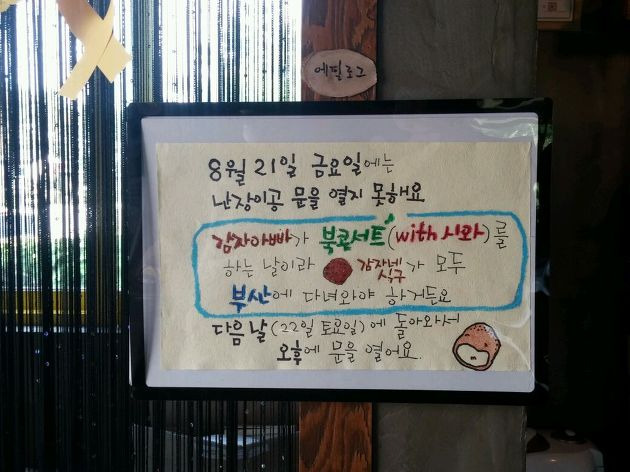 에필로그
8월 21일 금요일에는
난장이공 문을 열지 못해요
감자아빠가 북콘서트(with 시와)를
하는 날이라 감자네 식구가 모두
부산에 다녀와야 하거든요
다음날(22일 토요일)에 돌아와서
오후에 문을 열어요.